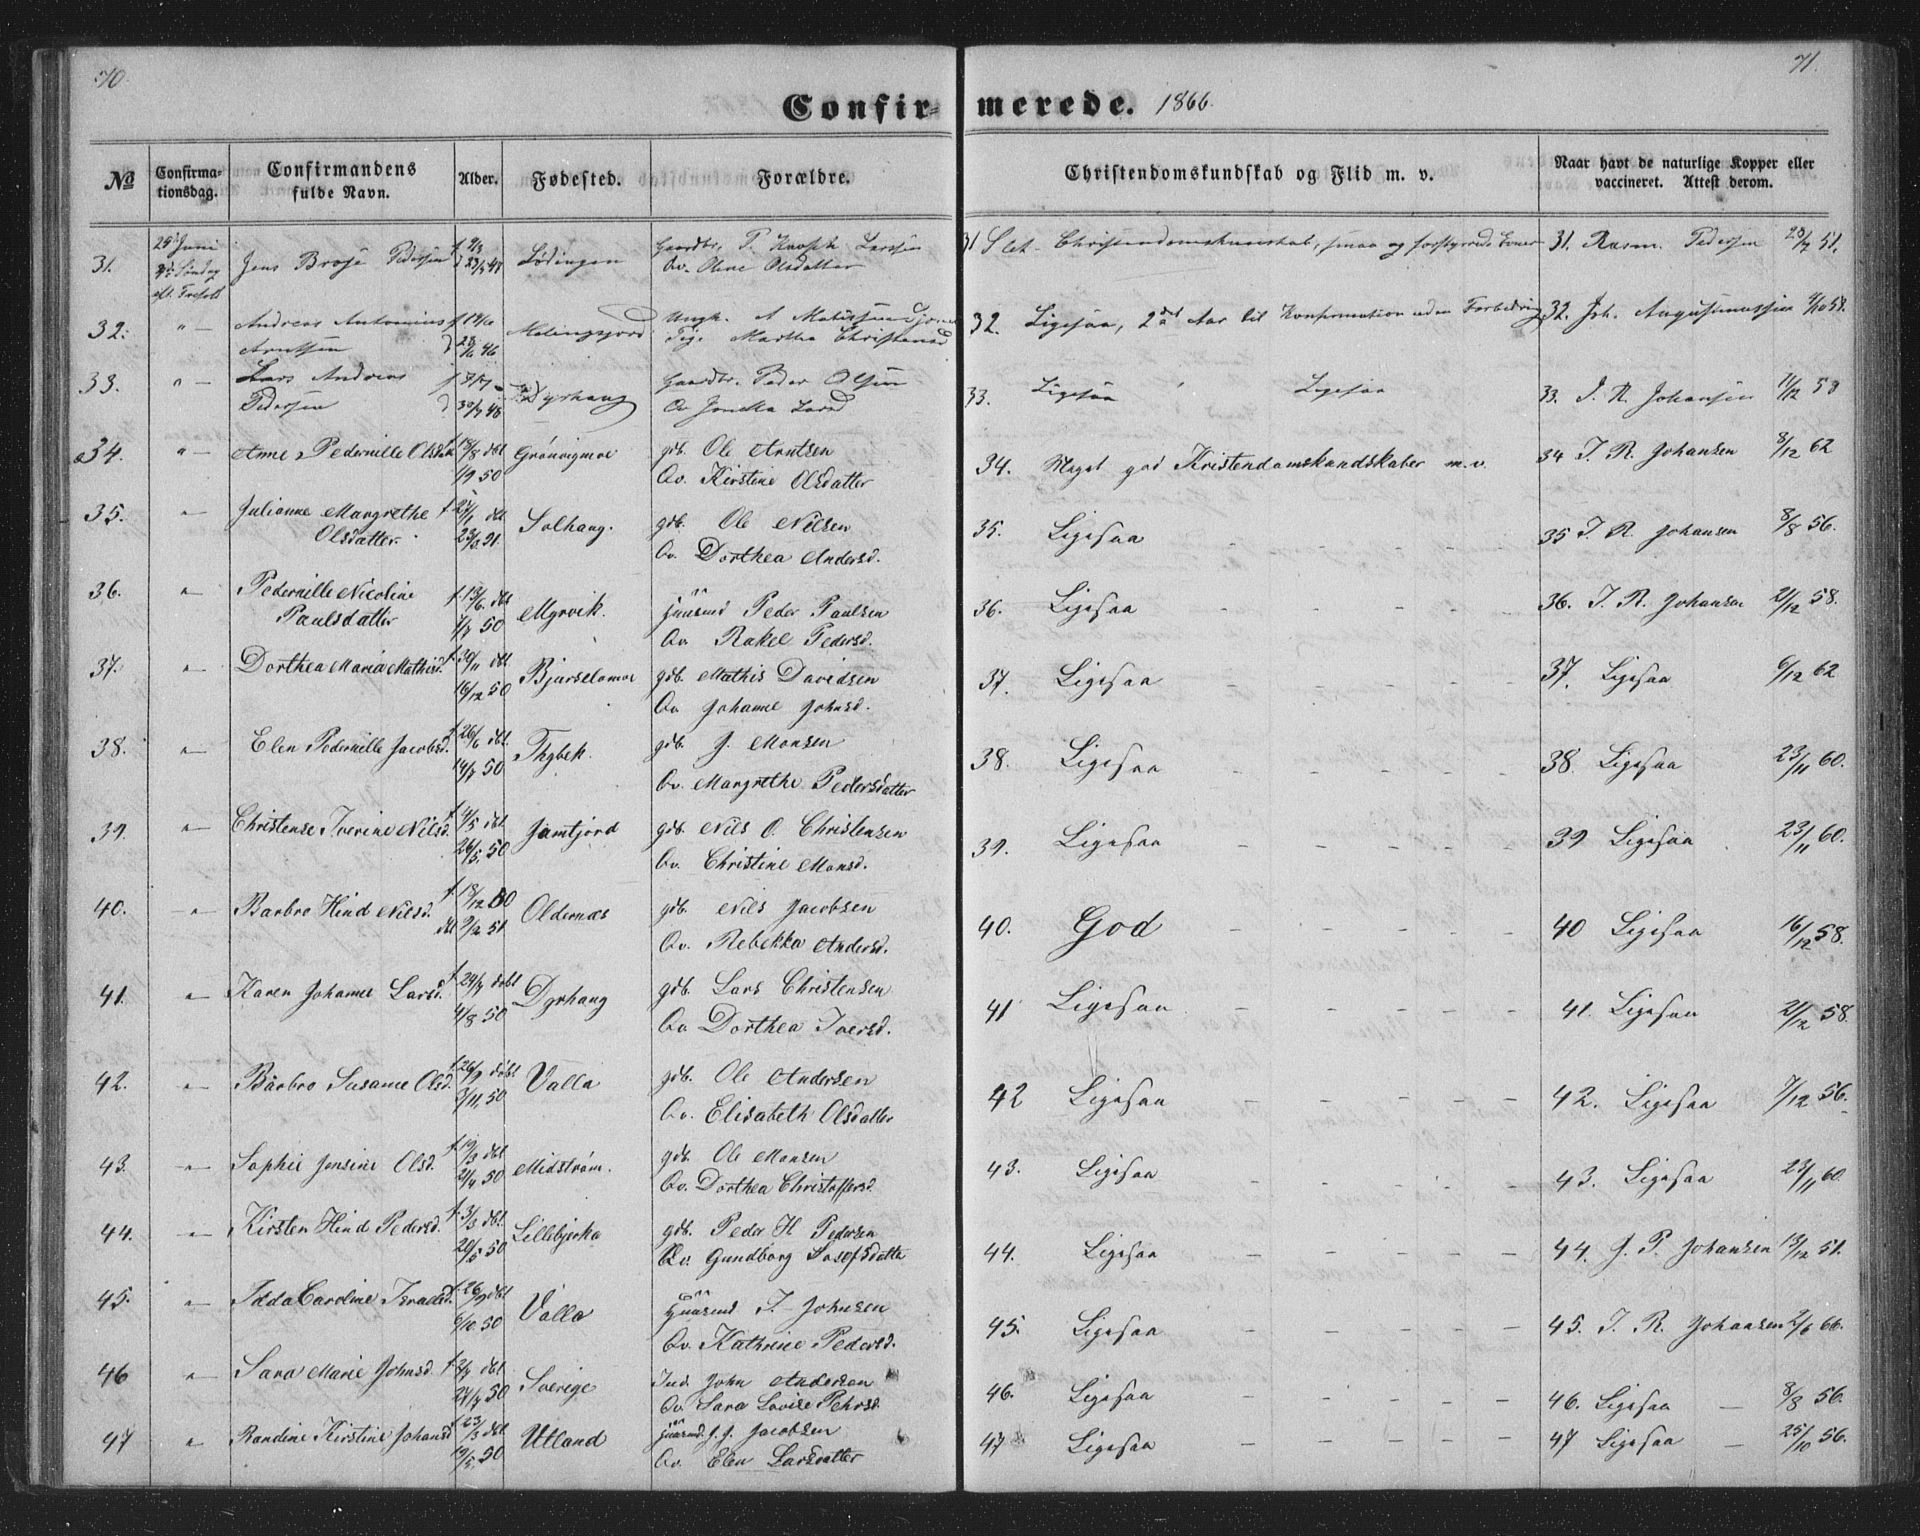 70.
71.
Confir-
merede. 1866.
No
Confirma-
tionsdag.
Confirmandens
fulde Navn.
Alder.
Fødested.
Forældre.
Christendomskundskab og Flid m. v.
Naar havt de naturlige Kopper eller
vaccineret. Attest derom.
25 Juni
31. Jens Pedersen Lødingen Gaardbr. P. Larssen
Qv. Olsdatter
31 Slet Christendomskundskab, smaa og
31. Rasm. Pedersen 51.
32. " — Andreas Antonius
Arntsen
46
Martha
32. Ligesaa, 2det Aar til Konfirmation uden Forbedring
32. Joh. Augustinussen
33. " — Lars Andreas
Pedersen
48
Dyrhaug Gaardbr. Peder Olsen
33. Ligesaa Ligesaa
33. J. R. Johansen 11/12 58
34. " — Anne Pedernille Olsdatt f. 18/8 dbt
1/9 50
Grønvigmoe gdb. Ole Arntsen
Qv. Kirstine Olsdatter
34. Meget god Kristendomskundskaber m. v.
34 J. R. Johansen 8/12 62
35. " Julianne Margrethe
Olsdatter
dbt
51.
Solhaug. gdb. Ole Nilsen
Qv. Dorthea Andersd.
35. Ligesaa
35 J. R. Johansen 8/8 56.
36. " Pedernille Nicoline
Paulsdatter
f. 13/6 dbt
1/7 50
Myrvik. Huusmd Peder Paulsen
Qv. Rakel Pedersd.
36. Ligesaa
36. J. R. Johansen 21/12 58.
37. " Dorthea Maria Mathisd. f. 30/11 dbt
16/12 50
gdb. Mathis Davidsen
Qv. Johanne Johnsd.
37. Ligesaa
37. Ligesaa 6/12 62
38. " — Elen Pedernille Jacobsd. f. 26/6 dbt.
14/7 50
gdb. J. Monsen
Qv. Margrethe Pedersdatter
38. Ligesaa
38. Ligesaa 23/11 60.
39. " — Christense Iverine Nilsd. dbt
26/5. 50
gdb. Nils O. Christensen
Qv. Christine Monsd.
39. Ligesaa
39 Ligesaa 23/11 60.
40. — " — Barbro Hind Nilsd. f. 18/12 50
dbt 9/2 51
Oldernæs gdb. Nils Jacobsen
Qv. Rebekka Andersd.
40. God
40 Ligesaa 16/12 58.
41. " — Karen Johanne Larsd. f. 24/7 døbt
4/8 50
Dyrhaug gdb. Lars Christensen
Qv Dorthea Iversd.
41 Ligesaa
41. Ligesaa 21/12 58.
42. " — Barbro Susanne Olsd. f. 26/9 døbt
3/11. 50
Valla gdb. Ole Andersen
Qv. Elisabeth Olsdatter
42 Ligesaa
42. Ligesaa 7/12 56.
43. " — Sophie Jensine Olsd. f. 19/3 dbt
21/4 50
Midstrøm. gdb. Ole Monsen
Qv. Dorthea Christoffersd.
43. Ligesaa
43. Ligesaa 23/11 60.
44. " — Kirsten Hind Pedersd. f. 3/3 dbt.
20/5 50
Lillebjerka gdb. Peder H Pedersen
Qv. Gundborg Josefsdatte
44. Ligesaa
44. J. P. Johansen 13/12 51.
45. " — Idda Caroline Israelsd. f. 26/9 dbt
6/10. 50
Valla Huusmd I. Johnsen
Qv. Kathrine Pedersd.
45. Ligesaa
45. J. R. Johansen 2/6 66.
46 " Sara Marie Johnsd. f. 2/7 dbt
50
Sverige Ind. John Andersen
Qv. Sara Lovise Pehrsd.
46. Ligesaa
46. Ligesaa — 8/8 56.
47 " Randine Kirstine Johansd f. 23/3 dbt
19/5. 50
Utland Huusmd. J. J. Jacobsen
Qv. Elen Larsdatter
47 Ligesaa
47 Ligesaa — 25/10 56.